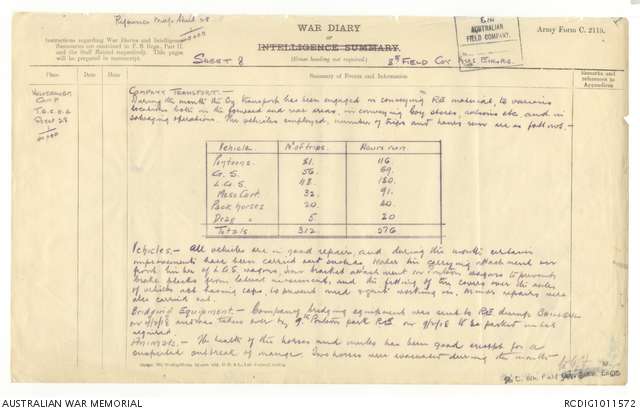 Reference Map Sheet 28
WAR DIARY
or
INTELLIGENCE SUMMARY.
(Erase heading not required).
Army Form C. 2118.
8TH
AUSTRALIAN
FIELD COMPANY,
Instructions regarding War Diaries and Intelligence
Summaries are contained in F. S. Regs., Part II.
and the Staff Manual respectively. Title pages
will be prepared in manuscript.
Sheet 8
8th Field Coy Aust. Engrs.
Place
Date
Summary of Events and Information
Remarks and
references to
Appendices
Camp
Sheet 28
Company Transport:-
During the month the Coy transport has been engaged in conveying R.E. material, to various
locations both in the forward and rear areas, in conveying Coy stores, rations etc. and in
salvaging operations. The vehicles employed, number of trips and hours run are as follows:-
Vehicle. No of trips. Hours run.
Pontoons. 81. 116
G.S. 56 89.
L.G.S. 48. 120.
Mess Cart. 32. 91.
Pack Horses 20. 40.
Drag " 5 20
Totals 312 576
Vehicles:- All vehicles are in good repair, and during the month certain
improvements have been carried out such as, water tin carrying attachment over
front of L.G.S. wagons, iron bracket attachment on pontoon wagons to prevent
brake blocks from lateral movement, and the fitting of tin covers over the axles
of vehicles not having caps, to prevent mud & grit working in. Minor repairs were
also carried out.
Bridging Equipment:- Company bridging equipment was sent to R.E. dump
and was taken over by Pontoon park R.E. on to be packed until
required.
Animals:- The health of the horses and mules has been good except for a
suspected outbreak of mange. Two horses were evacuated during the month
AUSTRALIAN WAR MEMORIAL
RCDIG1011572